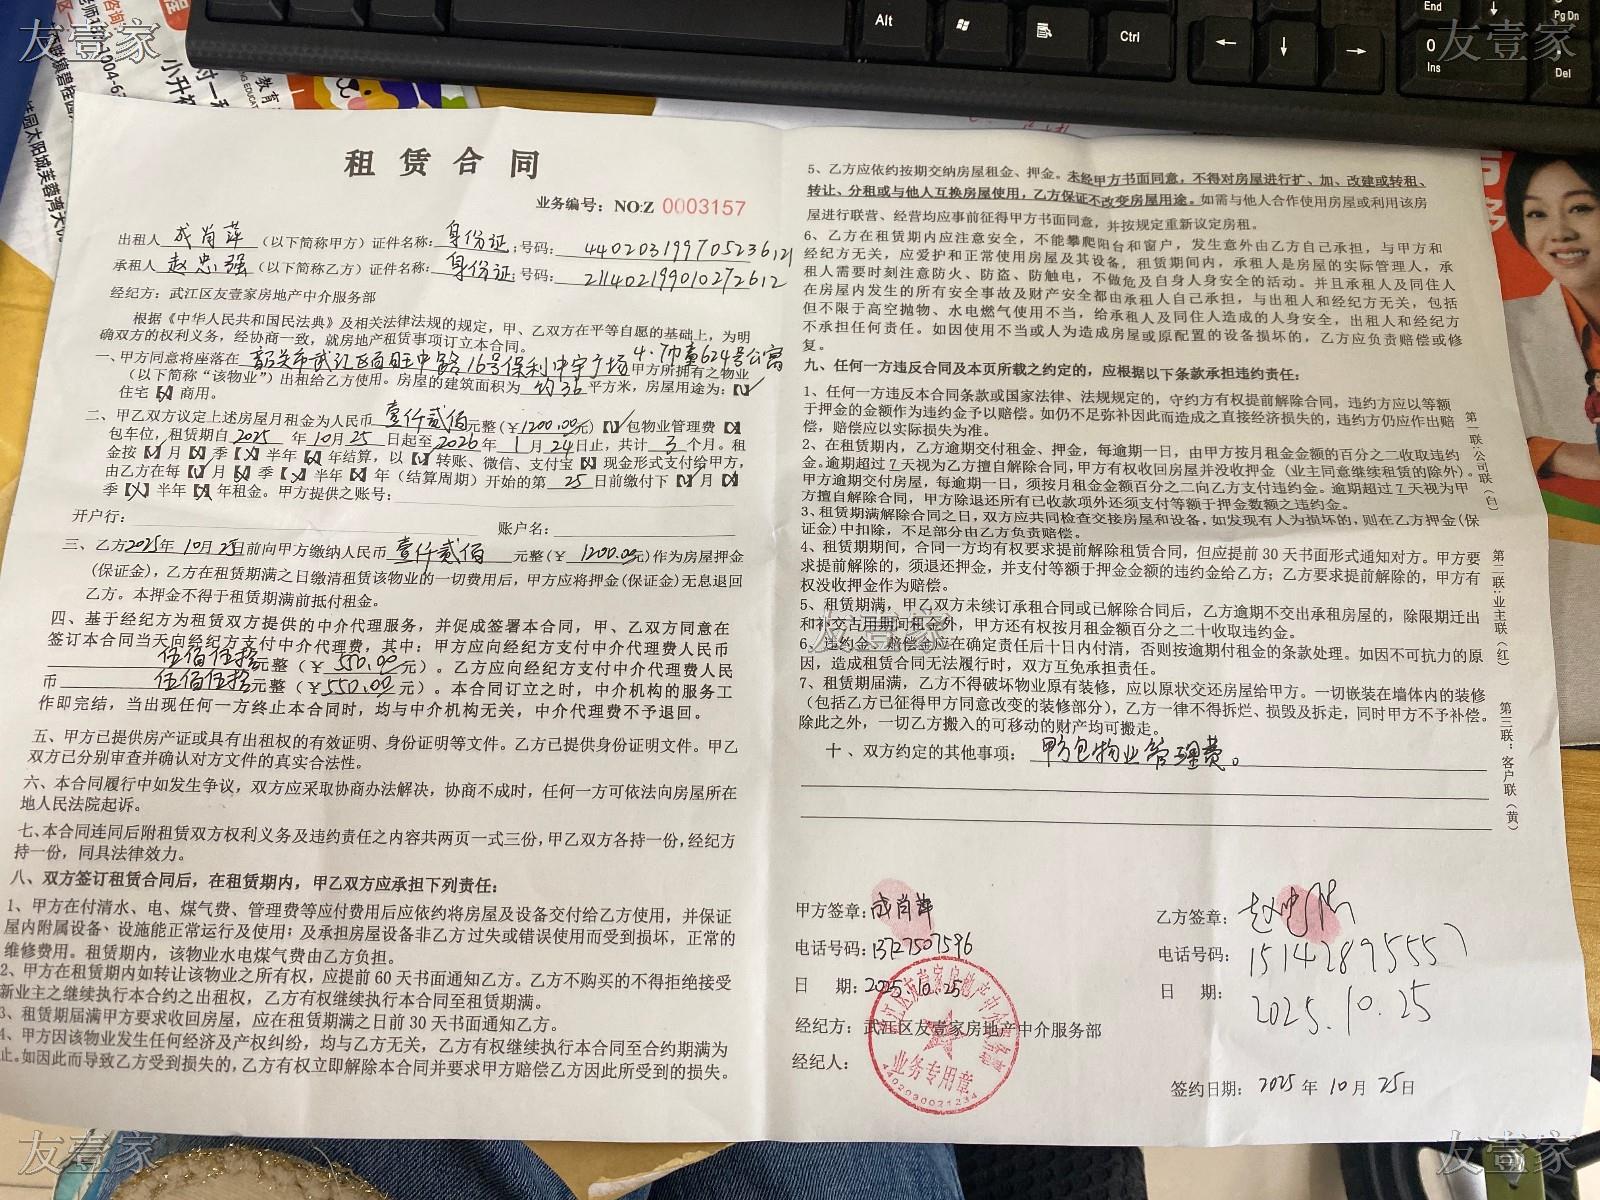 友壹家
友壹家
Alt
Ctrl
End
Pg Dn
0
Ins
Del
小升初
租赁合同
业务编号：NO:Z 0003157
出租人 成肖萍 （以下简称甲方）证件名称：身份证；号码：440203199705236121
承租人 赵忠强 （以下简称乙方）证件名称：身份证；号码：211402199010272612
经纪方：武江区友壹家房地产中介服务部
根据《中华人民共和国民法典》及相关法律法规的规定，甲、乙双方在平等自愿的基础上，为明
确双方的权利义务，经协商一致，就房地产租赁事项订立本合同。
一、甲方同意将座落在 韶关市武江区百旺中路16号保利中宇广场 624号公寓 甲方所拥有之物业
（以下简称“该物业”）出租给乙方使用。房屋的建筑面积为 约36 平方米，房屋用途为：【√】
住宅【×】商用。
二、甲乙双方议定上述房屋月租金为人民币 壹仟贰佰 元整（¥1200.00元）【√】包物业管理费【×】
包车位，租赁期自 2025 年 10 月 25 日起至 2026 年 1 月 24 日止，共计 3 个月。租
金按【√】月【×】季【×】半年【×】年结算，以【√】转账、微信、支付宝【×】现金形式支付给甲方，
由乙方在每【√】月【×】季【×】半年【×】年（结算周期）开始的第 25 日前缴付下【√】月【×】
季【×】半年【×】年租金。甲方提供之账号：
开户行： 账户名：
三、乙方2025年 10月 25日前向甲方缴纳人民币 壹仟贰佰 元整（¥ 1200.00元）作为房屋押金
（保证金），乙方在租赁期满之日缴清租赁该物业的一切费用后，甲方应将押金（保证金）无息退回
乙方。本押金不得于租赁期满前抵付租金。
四、基于经纪方为租赁双方提供的中介代理服务，并促成签署本合同，甲、乙双方同意在
签订本合同当天向经纪方支付中介代理费，其中：甲方应向经纪方支付中介代理费人民币
伍佰伍拾元整（¥ 550.00 元）。乙方应向经纪方支付中介代理费人民
币 伍佰伍拾元整（¥550.00 元）。本合同订立之时，中介机构的服务工
作即完结，当出现任何一方终止本合同时，均与中介机构无关，中介代理费不予退回。
五、甲方已提供房产证或具有出租权的有效证明、身份证明等文件。乙方已提供身份证明文件。甲乙
双方已分别审查并确认对方文件的真实合法性。
六、本合同履行中如发生争议，双方应采取协商办法解决，协商不成时，任何一方可依法向房屋所在
地人民法院起诉。
七、本合同连同后附租赁双方权利义务及违约责任之内容共两页一式三份，甲乙双方各持一份，经纪方
持一份，同具法律效力。
八、双方签订租赁合同后，在租赁期内，甲乙双方应承担下列责任：
1、甲方在付清水、电、煤气费、管理费等应付费用后应依约将房屋及设备交付给乙方使用，并保证
屋内附属设备、设施能正常运行及使用；及承担房屋设备非乙方过失或错误使用而受到损坏，正常的
维修费用。租赁期内，该物业水电煤气费由乙方负担。
2、甲方在租赁期内如转让该物业之所有权，应提前 60 天书面通知乙方。乙方不购买的不得拒绝接受
新业主之继续执行本合约之出租权，乙方有权继续执行本合同至租赁期满。
3、租赁期届满甲方要求收回房屋，应在租赁期满之日前 30 天书面通知乙方。
4、甲方因该物业发生任何经济及产权纠纷，均与乙方无关，乙方有权继续执行本合同至合约期满为
止。如因此而导致乙方受到损失的，乙方有权立即解除本合同并要求甲方赔偿乙方因此所受到的损失。
5、乙方应依约按期交纳房屋租金、押金。未经甲方书面同意，不得对房屋进行扩、加、改建或转租、
转让、分租或与他人互换房屋使用，乙方保证不改变房屋用途。如需与他人合作使用房屋或利用该房
屋进行联营、经营均应事前征得甲方书面同意，并按规定重新议定房租。
6、乙方在租赁期内应注意安全，不能攀爬阳台和窗户，发生意外由乙方自己承担，与甲方和
经纪方无关，应爱护和正常使用房屋及其设备，租赁期间内，承租人是房屋的实际管理人，承
租人需要时刻注意防火、防盗、防触电，不做危及自身人身安全的活动。并且承租人及同住人
在房屋内发生的所有安全事故及财产安全都由承租人自己承担，与出租人和经纪方无关，包括
但不限于高空抛物、水电燃气使用不当，给承租人及同住人造成的人身安全，出租人和经纪方
不承担任何责任。如因使用不当或人为造成房屋或原配置的设备损坏的，乙方应负责赔偿或修
复。
九、任何一方违反合同及本页所载之约定的，应根据以下条款承担违约责任：
1、任何一方违反本合同条款或国家法律、法规规定的，守约方有权提前解除合同，违约方应以等额
于押金的金额作为违约金予以赔偿。如仍不足弥补因此而造成之直接经济损失的，违约方仍应作出赔
偿，赔偿应以实际损失为准。
2、在租赁期内，乙方逾期交付租金、押金，每逾期一日，由甲方按月租金金额的百分之二收取违约
金。逾期超过 7 天视为乙方擅自解除合同，甲方有权收回房屋并没收押金（业主同意继续租赁的除外）。
甲方逾期交付房屋，每逾期一日，须按月租金金额百分之二向乙方支付违约金。逾期超过 7 天视为甲
方擅自解除合同，甲方除退还所有已收款项外还须支付等额于押金数额之违约金。
3、租赁期满解除合同之日，双方应共同检查交接房屋和设备，如发现有人为损坏的，则在乙方押金（保
证金）中扣除，不足部分由乙方负责赔偿。
4、租赁期期间，合同一方均有权要求提前解除租赁合同，但应提前 30 天书面形式通知对方。甲方要
求提前解除的，须退还押金，并支付等额于押金金额的违约金给乙方；乙方要求提前解除的，甲方有
权没收押金作为赔偿。
5、租赁期满，甲乙双方未续订承租合同或已解除合同后，乙方逾期不交出承租房屋的，除限期迁出
和补交占用期间租金外，甲方还有权按月租金额百分之二十收取违约金。
友壹家
6、违约金、赔偿金应在确定责任后十日内付清，否则按逾期付租金的条款处理。如因不可抗力的原
因，造成租赁合同无法履行时，双方互免承担责任。
7、租赁期届满，乙方不得破坏物业原有装修，应以原状交还房屋给甲方。一切嵌装在墙体内的装修
（包括乙方已征得甲方同意改变的装修部分），乙方一律不得拆烂、损毁及拆走，同时甲方不予补偿。
除此之外，一切乙方搬入的可移动的财产均可搬走。
十、双方约定的其他事项：甲方包物业管理费。
第一联：公司联（白）
第二联：业主联（红）
第三联：客户联（黄）
甲方签章：成肖萍
电话号码：13727507596
日 期：2025.10.25
经纪方：武江区友壹家房地产中介服务部
经纪人：
武江区友壹家房地产中介服务部
业务专用章
4402030021234
乙方签章：赵忠强
电话号码：15142895557
日 期：2025.10.25
签约日期：2025 年 10 月 25日
友壹家
友壹家